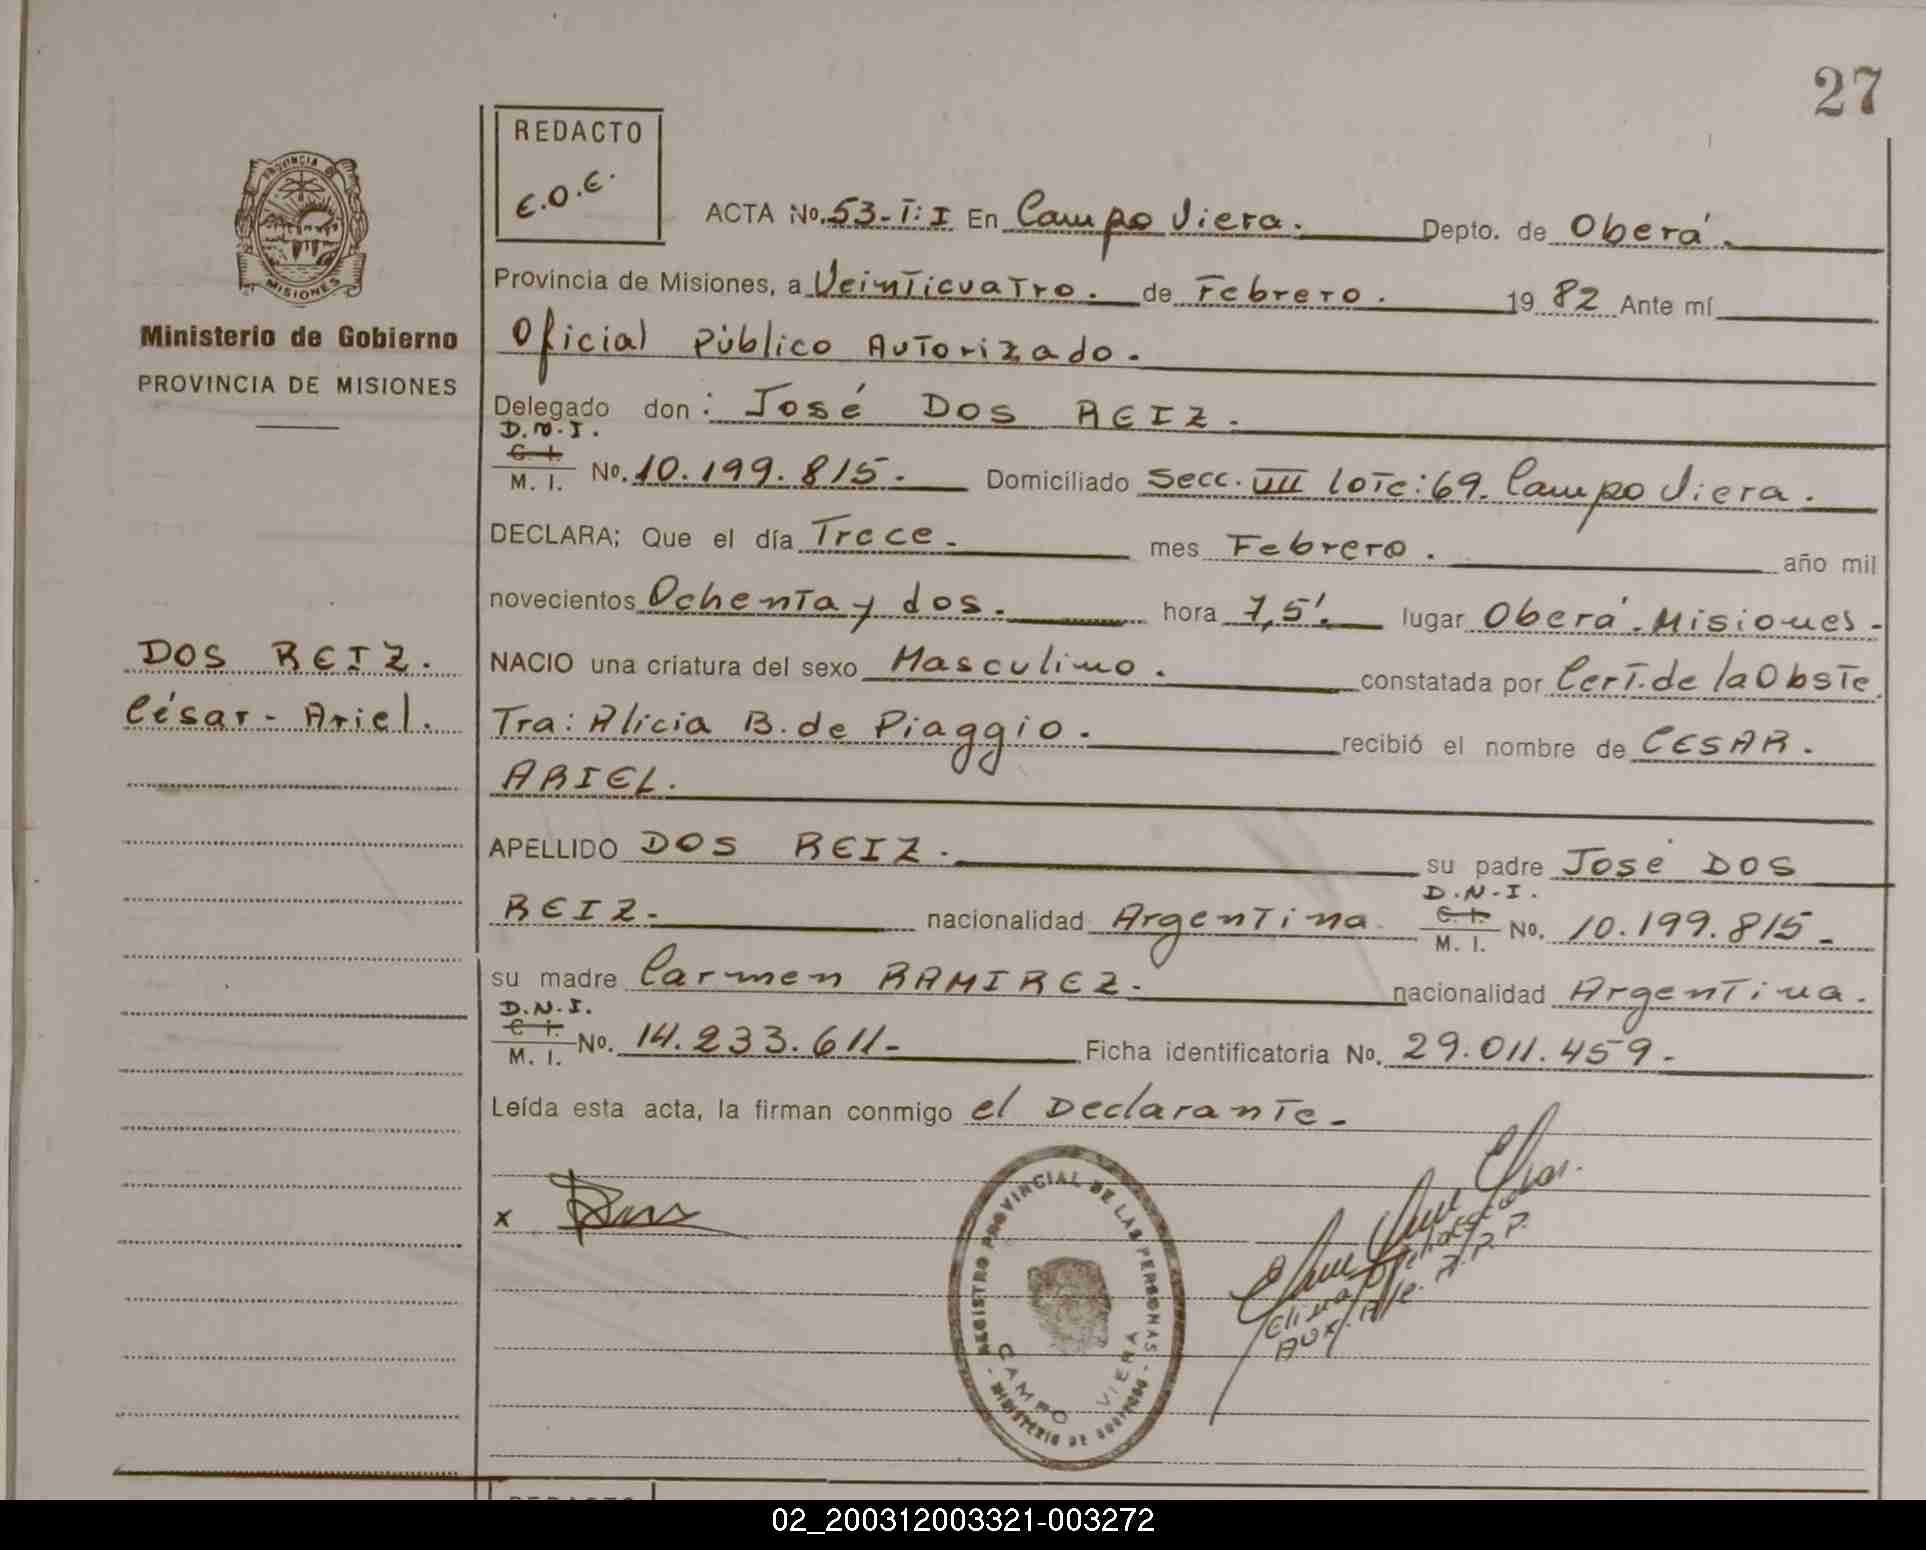 27
REDACTO
E.O.E.
ACTA No. 53-T: I En Campo Viera. Depto. de Oberá.
Provincia de Misiones, a Veinticuatro. de Febrero. 1982 Ante mí
Oficial Público Autorizado.
Delegado don: José DOS REIZ.
D.N.I.
C. I.
M. I. No. 10.199.815. Domiciliado Secc. VIII lote: 69. Campo Viera.
DECLARA; Que el día Trece. mes Febrero. año mil
novecientos Ochenta y dos. hora 7,5'. lugar Oberá. Misiones-
NACIO una criatura del sexo Masculino. constatada por Cert. de la Obste
Tra: Alicia B. de Piaggio. recibió el nombre de CESAR.
ARIEL.
APELLIDO DOS REIZ. su padre José DOS
REIZ. nacionalidad Argentina. D.N.I. C. I. M. I. No. 10.199.815-
su madre Carmen RAMIREZ. nacionalidad Argentina.
D.N.I.
C. I.
M. I. No. 14.233.611- Ficha identificatoria No. 29.011.459-
Leída esta acta, la firman conmigo el Declarante-
x
PROVINCIA
MISIONES
Ministerio de Gobierno
PROVINCIA DE MISIONES
DOS REIZ.
César-Ariel.
REGISTRO PROVINCIAL DE LAS PERSONAS
CAMPO VIERA
- MINISTERIO DE GOBIERNO -
REDACTO
02_200312003321-003272